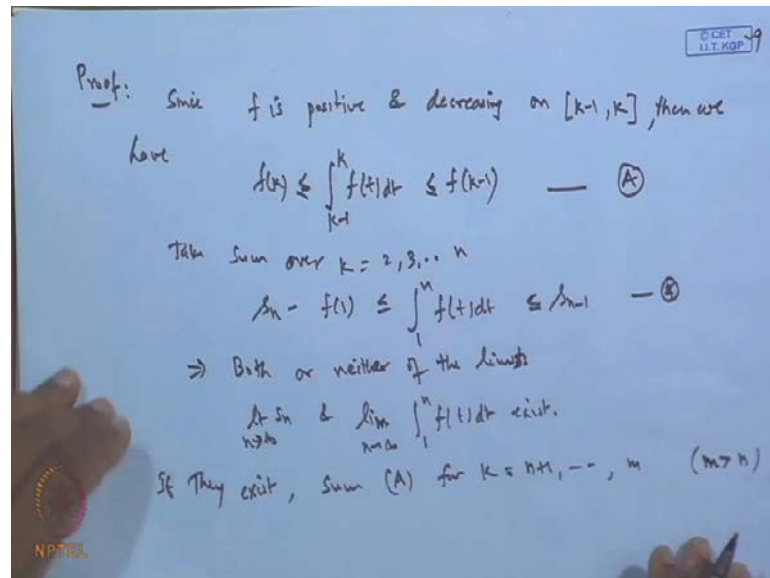 © CET
I.I.T. KGP
Proof: Since f is positive & decreasing on [k-1, k], then we
have
f(k) ≤ ∫_{k-1}^{k} f(t) dt ≤ f(k-1) — (A)
Take sum over k = 2, 3, .. n
s_n - f(1) ≤ ∫_1^n f(t) dt ≤ s_{n-1} —
⇒ Both or neither of the limits
lt_{n→∞} s_n & lim_{n→∞} ∫_1^n f(t) dt exist.
If They exist, sum (A) for k = n+1, --, m (m > n)
NPTEL